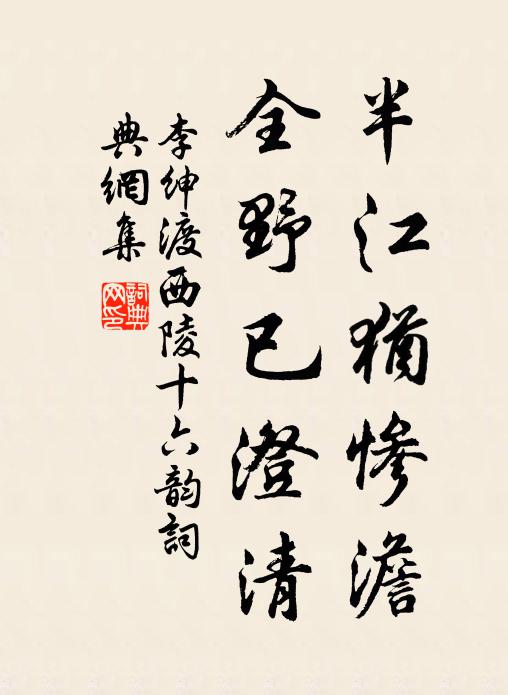 半江猶慘澹
全野已澄清
李紳渡西陵十六韵詞
典網集
詞典網印